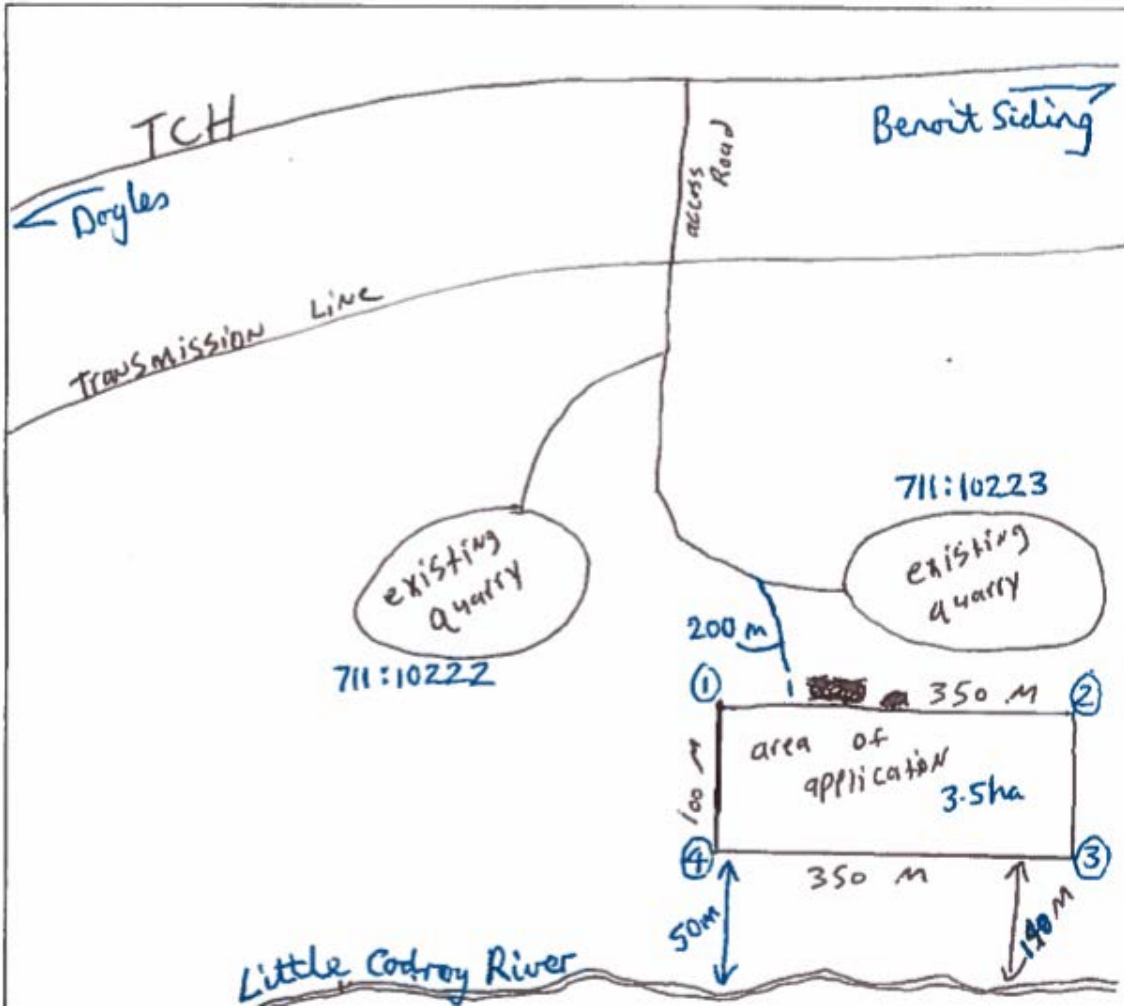 TCH
Benoit Siding
Doyles
access
Road
Transmission Line
711:10223
existing
quarry
existing
quarry
711:10222
200 m
1
350 M
2
area of
application
3.5ha
100 M
4
350 M
3
50m
Little Codroy River